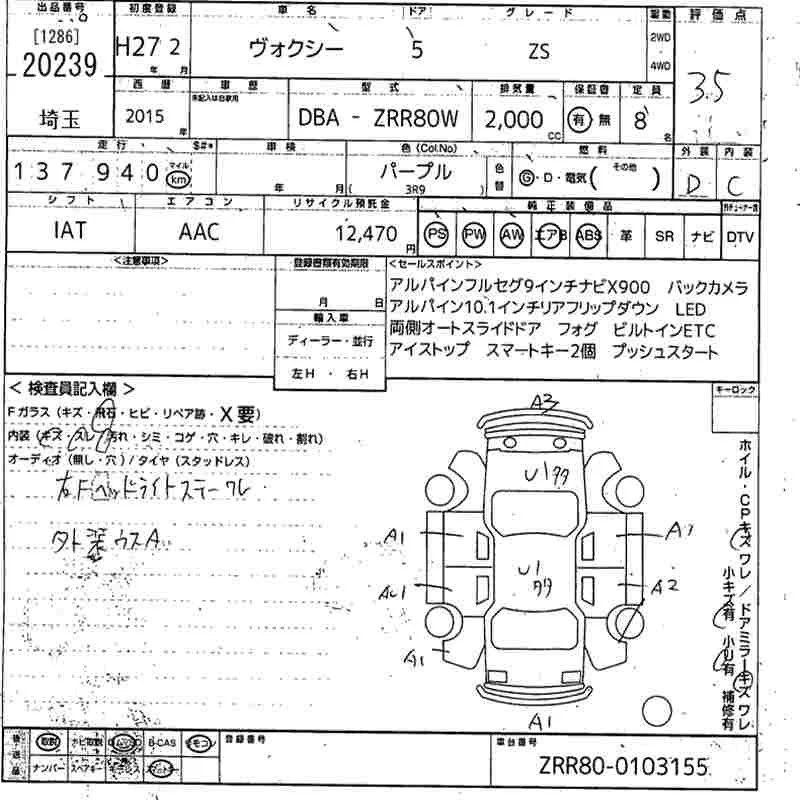 出品番号 初度登録 車名 ドア グレード 駆動 評価点
[1286] 20239 H27 2 年 月 ヴォクシー 5 ZS 2WD 4WD 3.5
西暦 車歴 型式 排気量 保証書 定員
埼玉 2015 年 未記入は自家用 DBA - ZRR80W 2,000 CC 有 無 8 名
走行 $#* 車検 色(Col.No) 燃料 外装 内装
137,940 マイル km 年 月 パープル (3R9) 色替 G・D・電気( その他 ) D C
シフト エアコン リサイクル預託金 純正装備品
IAT AAC 12,470 円 PS PW AW エアB ABS 革 SR ナビ DTV
<注意事項> 登録書類有効期限 <セールスポイント>
月 日
アルパインフルセグ9インチナビX900 バックカメラ
アルパイン10.1インチリアフリップダウン LED
両側オートスライドドア フォグ ビルトインETC
アイストップ スマートキー2個 プッシュスタート
輸入車
ディーラー・並行
左H ・ 右H
<検査員記入欄> キーロック
Fガラス(キズ・飛石・ヒビ・リペア跡・X要)
内装(キズ・スレ・汚れ・シミ・コゲ・穴・キレ・破れ・割れ)
オーディオ(無し・穴)/タイヤ(スタッドレス)
右Fヘッドライトステーワレ
外装ウスA
A3
U1タタ
A1
U1タタ
A2
A1
A1
ホイル・CPキズワレ/ドアミラーキズワレ
小キズ有 小凹有 補修有
後送品 取説 ナビ取説 B-CAS リモコン 登録番号 車台番号
ナンバー スペアキー ZRR80-0103155